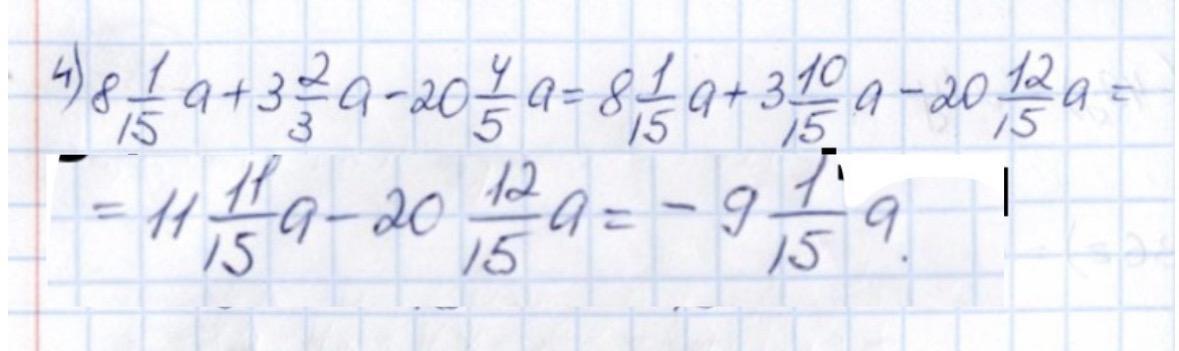 4) 8 1/15 a + 3 2/3 a - 20 4/5 a = 8 1/15 a + 3 10/15 a - 20 12/15 a =
= 11 11/15 a - 20 12/15 a = - 9 1/15 a.